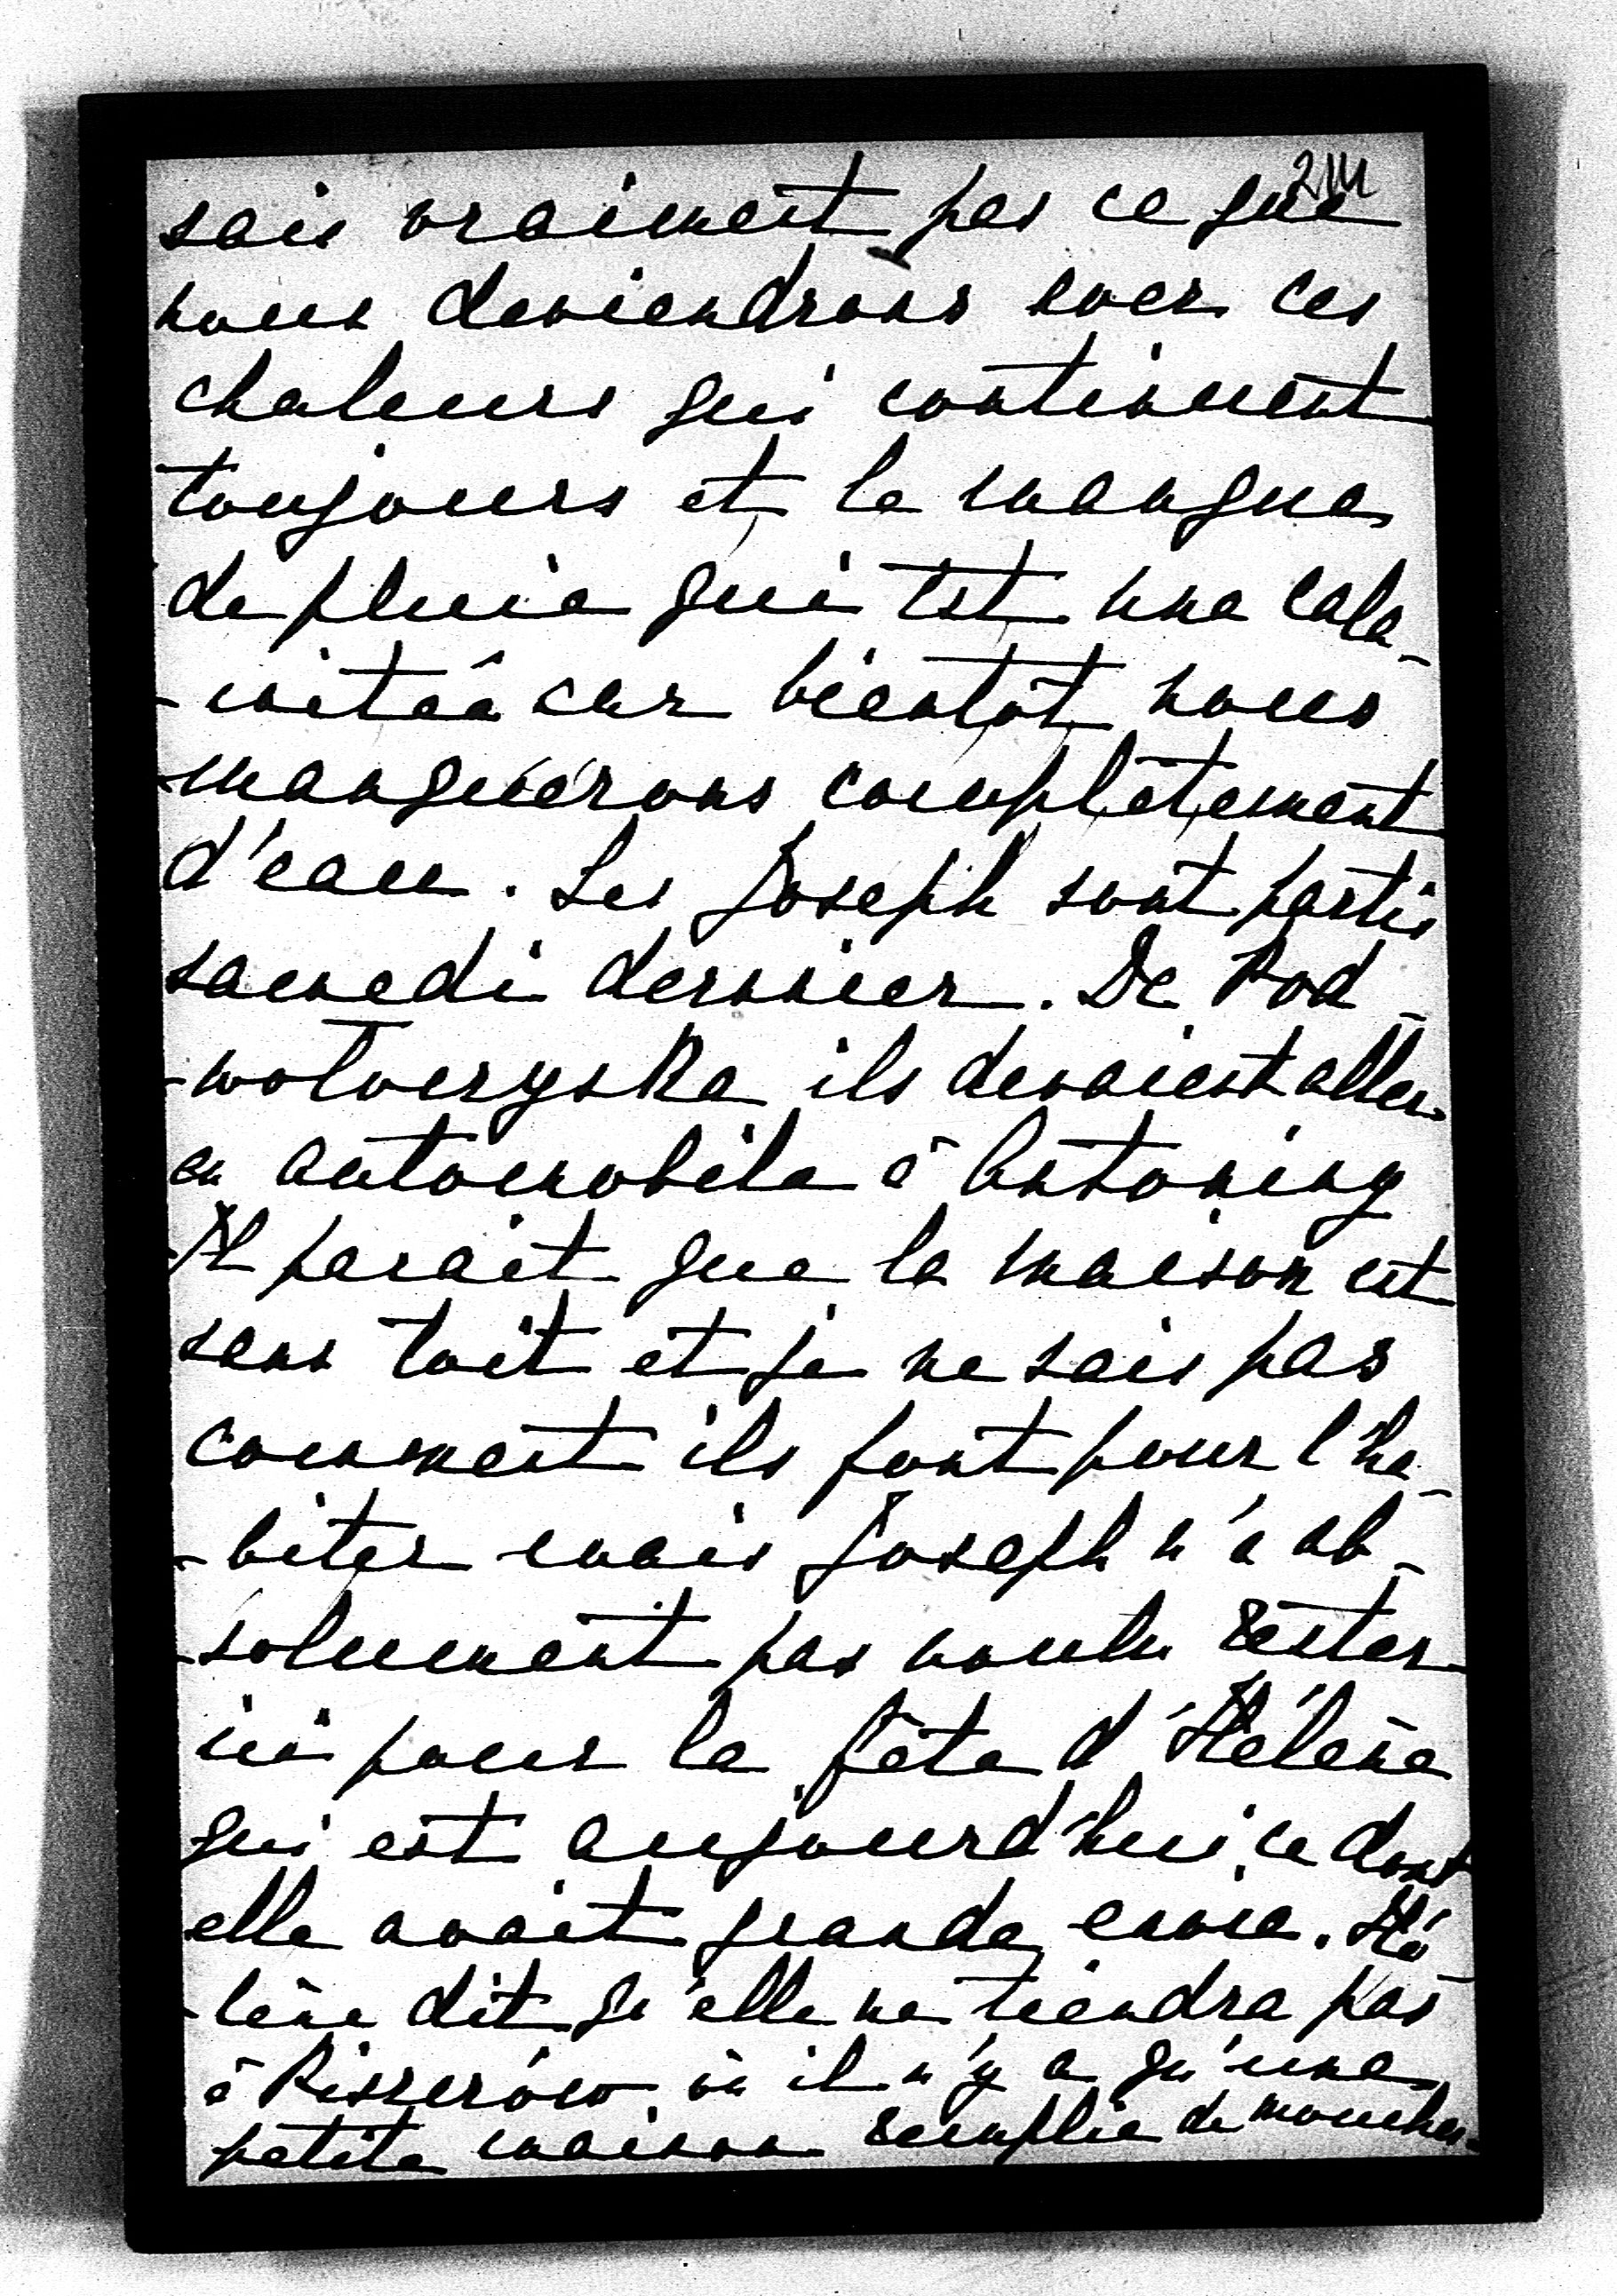 214
sais vraiment pas ce que
nous deviendrons avec ces
chaleurs qui continuent
toujours et le manque
de pluie qui est une cala-
-mité car bientôt nous
manquerons complètement
d'eau. Les Joseph sont partis
samedi dernier. De Pod-
-wołoczyska ils devaient aller
en automobile à Antoniny
Il parait que la maison est
sans toit et je ne sais pas
comment ils font pour l'ha-
-biter mais Joseph n'a ab-
-solument pas voulu rester
ici pour la fête d'Hélène
qui est aujourd'hui, ce dont
elle avait grande envie. Hé-
-lène dit qu'elle ne tiendra pas
à où il n'y a qu'une
petite maison remplie de mouches